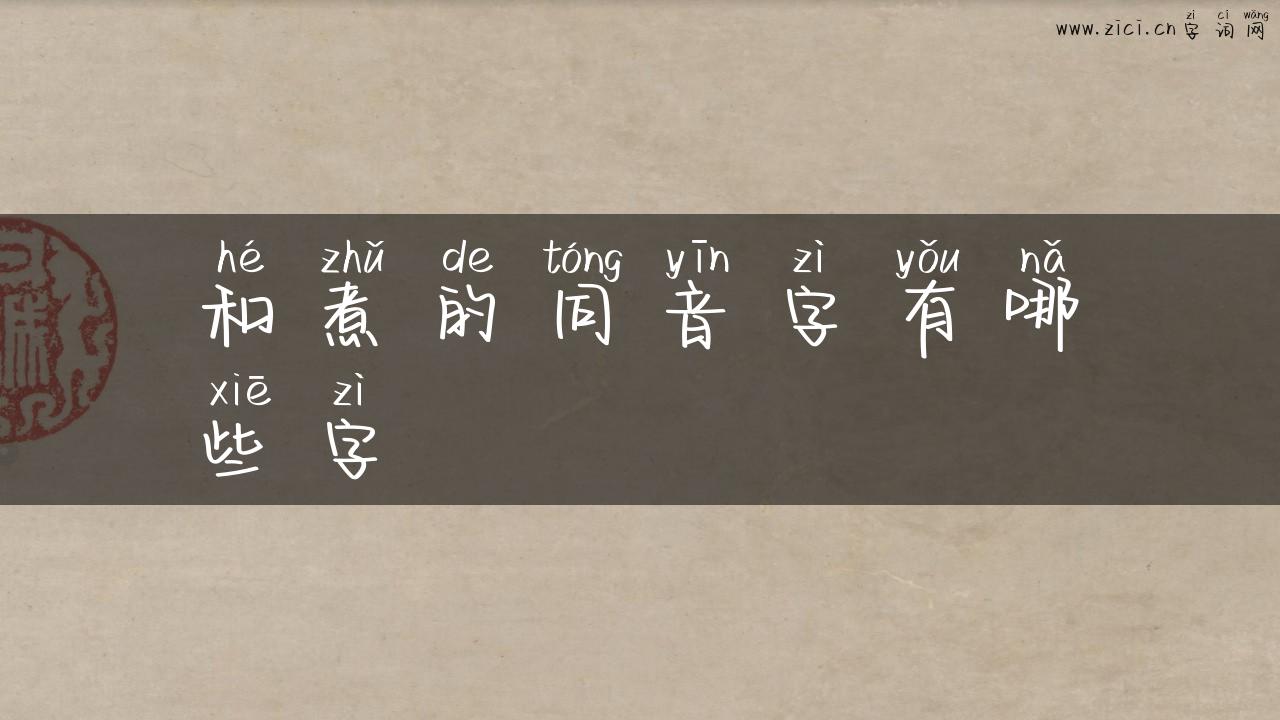 zì cí wǎng
www.zici.cn 字词网
hé zhǔ de tóng yīn zì yǒu nǎ
和煮的同音字有哪
xiē zì
些字